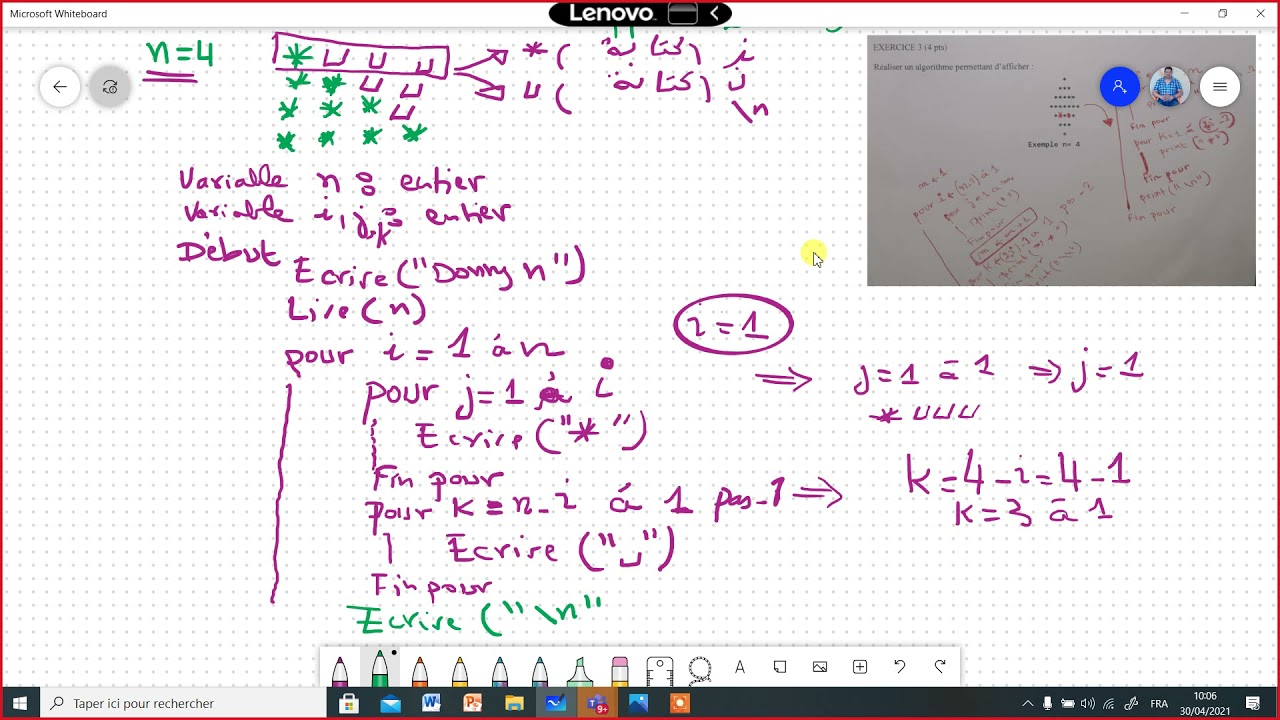 Microsoft Whiteboard
Lenovo
n=4
* ⊔ ⊔ ⊔ * ( كتابة i
* * ⊔ ⊔ ⊔ ( كتابة j
* * * ⊔ \n
* * * *
Variable n : entier
Variable i, j, k : entier
Début
Ecrire("Donny n")
Lire(n)
pour i = 1 à n
pour j=1 à i
Ecrire("*")
Fin pour
pour k = n-i à 1 pas-1
Ecrire("⊔")
Fin pour
Ecrire("\n"
i = 1
⇒ j=1 à 1 ⇒ j=1
* ⊔⊔⊔
⇒ k=4-i=4-1
k=3 à 1
EXERCICE 3 (4 pts)
Réaliser un algorithme permettant d'afficher :
*
***
*****
*******
*****
***
*
Exemple n= 4
Fin pour
pour k=1 à
print("*")
Fin pour
print("\n")
Fin pour
A
Taper ici pour rechercher
9+
FRA
10:06
30/04/2021